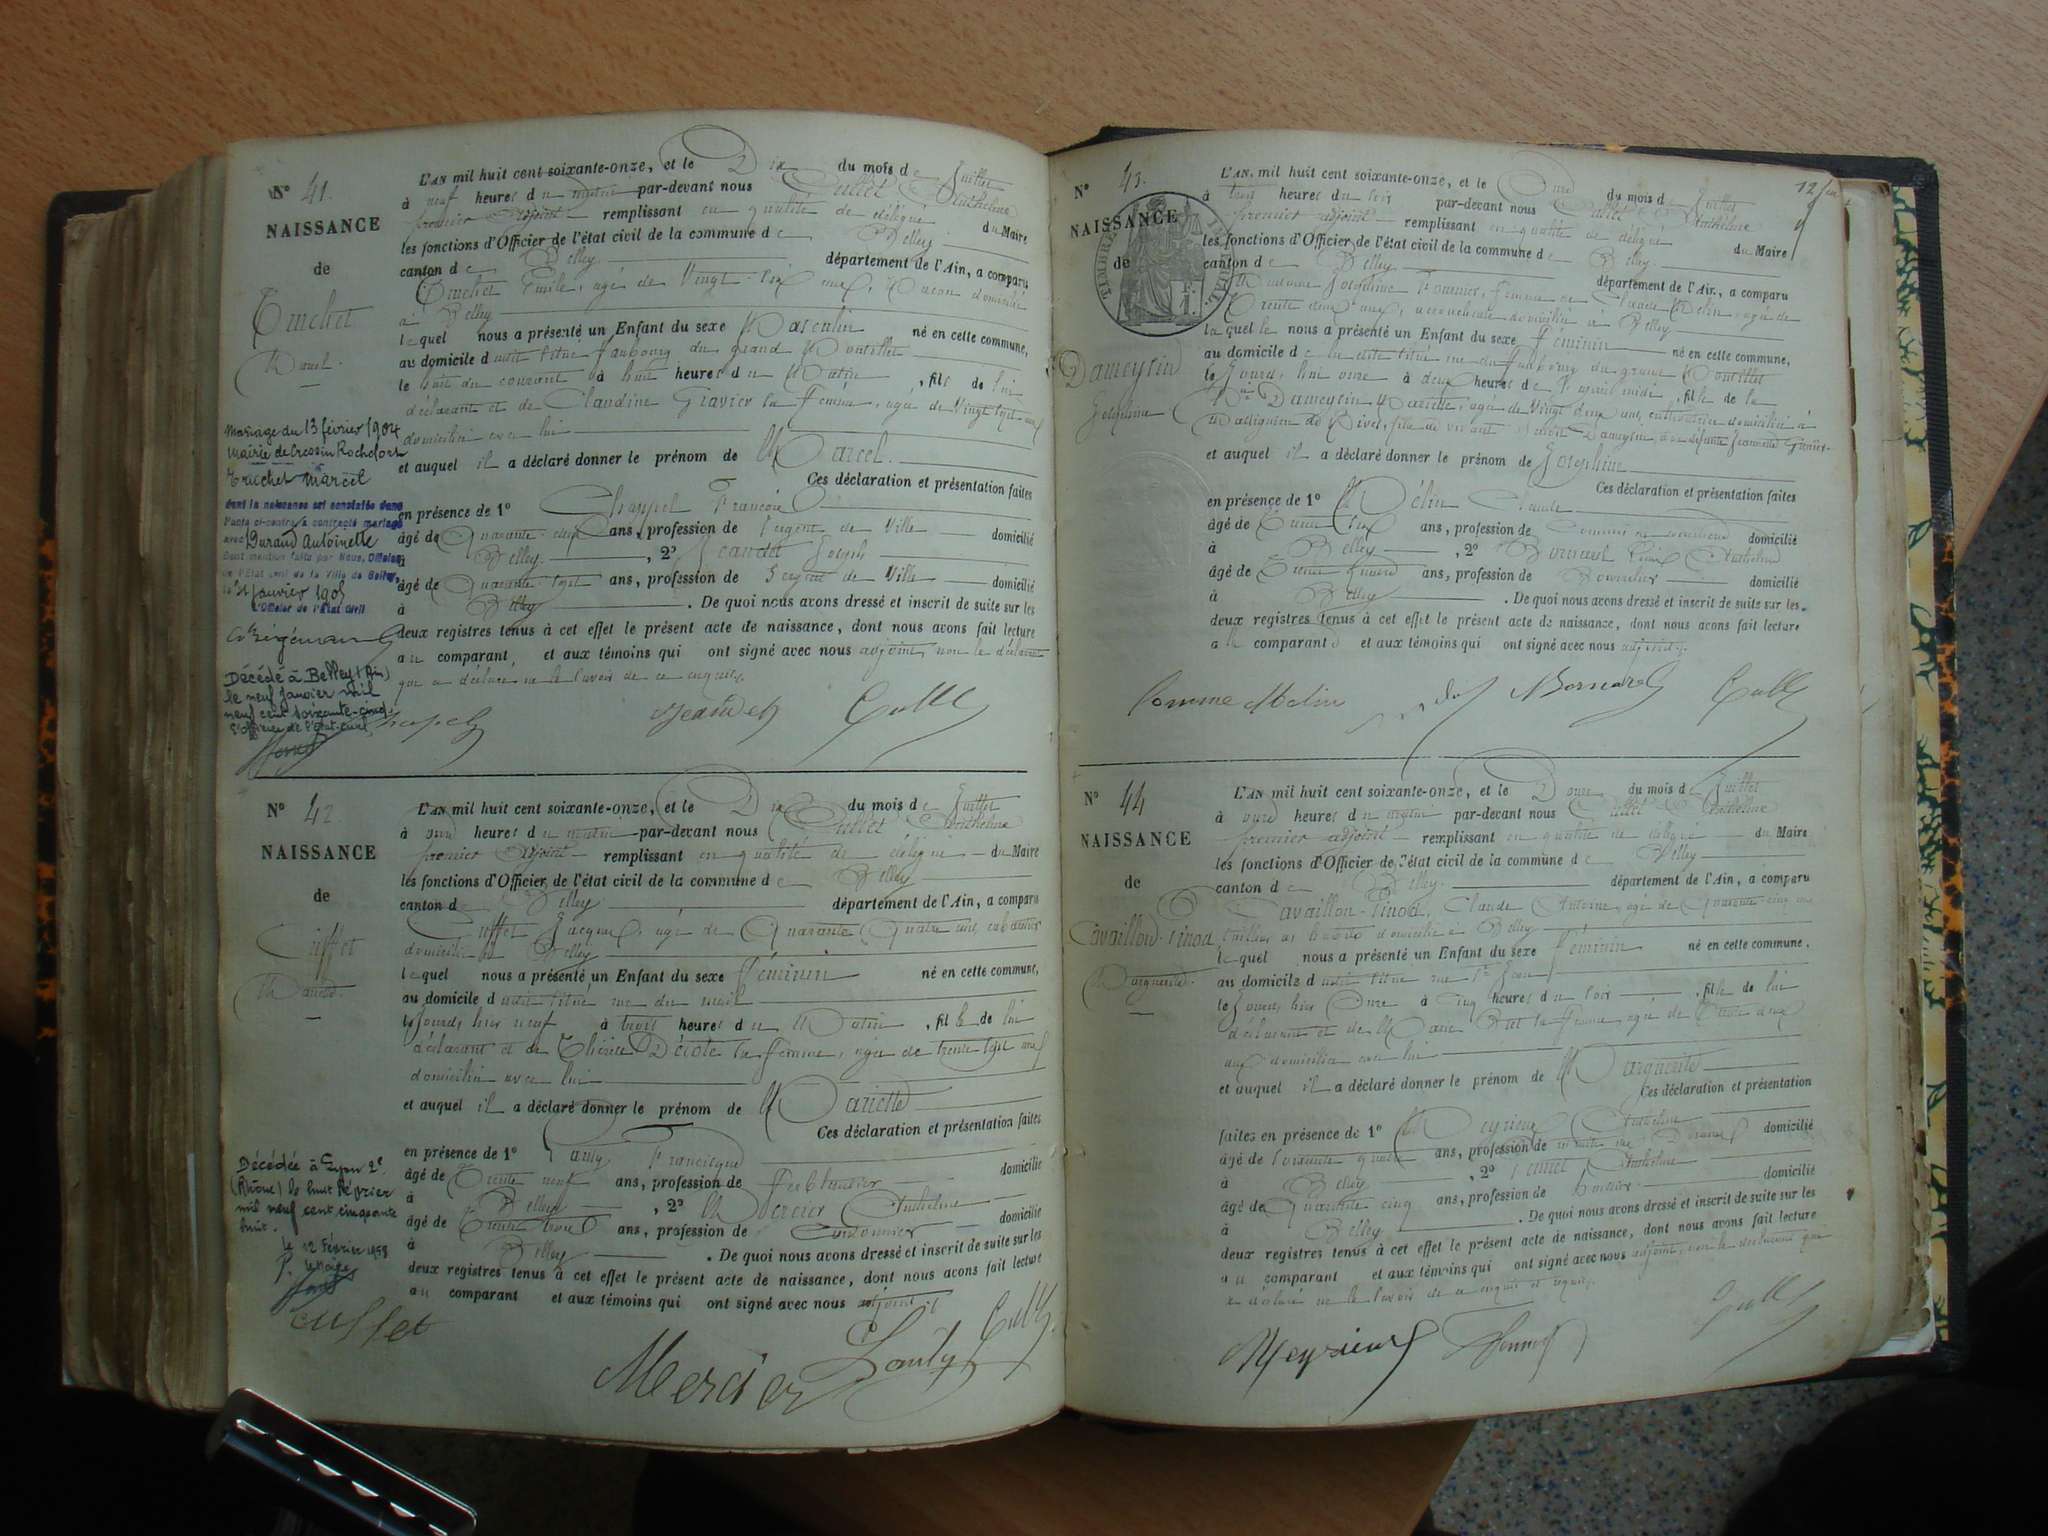 N° 41.
NAISSANCE
de
Truchet
Marcel.
L'AN mil huit cent soixante-onze, et le Dix du mois de Juillet
à neuf heures du matin par-devant nous Cullet Anthelme
premier adjoint remplissant en qualité de délégué
les fonctions d'Officier de l'état civil de la commune de Belley du Maire
canton de Belley département de l'Ain, a comparu
Truchet Emile, agé de Vingt-six ans, Maçon domicilié
à Belley
lequel nous a présenté un Enfant du sexe Masculin né en cette commune,
au domicile dudit situé faubourg du grand
le huit du courant à huit heures du Matin, fils de lui
déclarant et de Claudine Gravier sa femme, agée de Vingt sept ans
domiciliée avec lui
et auquel il a déclaré donner le prénom de Marcel.
Ces déclaration et présentation faites
en présence de 1° Chappel François
âgé de Quarante-deux ans, profession de Sergent de Ville domicilié
à Belley, 2° Jeandet Joseph
âgé de Quarante-sept ans, profession de Sergent de Ville domicilié
à Belley. De quoi nous avons dressé et inscrit de suite sur les
deux registres tenus à cet effet le présent acte de naissance, dont nous avons fait lecture
au comparant, et aux témoins qui ont signé avec nous adjoint, non le déclarant
qui a déclaré ne le savoir de ce enquis.
Mariage du 13 février 1904
Mairie de Cressin Rochefort
Truchet Marcel
dont la naissance est constatée dans
l'acte ci-contre a contracté mariage
avec Durand Antoinette
Dont mention faite par Nous, Officier
de l'Etat civil de la Ville de Belley,
le 31 janvier 1905
L'Officier de l'Etat Civil
Décédé à Belley (Ain)
le neuf Janvier mil
neuf cent soixante-cinq
L'officier de l'Etat-civil
Chapel Jeandet Cullet
N° 42.
NAISSANCE
de
Cuffet
Mariette.
L'AN mil huit cent soixante-onze, et le Dix du mois de Juillet
à onze heures du matin par-devant nous Cullet Anthelme
premier Adjoint remplissant en qualité de délégué du Maire
les fonctions d'Officier de l'état civil de la commune de Belley
canton de Belley département de l'Ain, a comparu
Cuffet Jacques, agé de Quarante Quatre ans, cabaretier
domicilié à Belley
lequel nous a présenté un Enfant du sexe Féminin né en cette commune,
au domicile dudit situé rue du mail
le Jourd'hier neuf à trois heures du Matin, fille de lui
déclarant et de Thérèse sa femme, agée de trente sept ans
domiciliée avec lui
et auquel il a déclaré donner le prénom de Mariette
Ces déclaration et présentation faites
en présence de 1° Pauly Francisque
âgé de Trente neuf ans, profession de Ferblantier domicilié
à Belley, 2° Mercier Anthelme
âgé de Trente trois ans, profession de Cordonnier domicilié
à Belley. De quoi nous avons dressé et inscrit de suite sur les
deux registres tenus à cet effet le présent acte de naissance, dont nous avons fait lecture
au comparant et aux témoins qui ont signé avec nous adjoint
Décédée à Lyon 2e
(Rhône) le huit Février
mil neuf cent cinquante
huit.
le 12 Février 1958
P. le Maire
Cuffet
Mercier Pauly Cullet
12
N° 43.
NAISSANCE
de
TIMBRE IMPÉRIAL
Dameysin
Joséphine
L'AN, mil huit cent soixante-onze, et le Onze du mois de Juillet
à trois heures du soir par-devant nous Cullet Anthelme
premier adjoint remplissant en qualité de délégué
les fonctions d'Officier de l'état civil de la commune de Belley du Maire
canton de Belley département de l'Ain, a comparu
Madame Joséphine Fournier, femme de Claude Melin agée de
Trente deux ans, accoucheuse domiciliée à Belley
laquelle nous a présenté un Enfant du sexe Féminin né en cette commune,
au domicile de la dite situé rue du faubourg du grand
le Jourd'hui onze à deux heures de l'après midi, fille de la
Dameysin Mariette, agée de Vingt deux ans, cultivatrice domiciliée à
et auquel il a déclaré donner le prénom de Joséphine
Ces déclaration et présentation faites
en présence de 1° Mélin Claude
âgé de Trente six ans, profession de domicilié
à Belley, 2° Bornarel Anthelme
âgé de Trente ans, profession de Bourrelier domicilié
à Belley. De quoi nous avons dressé et inscrit de suite sur les
deux registres tenus à cet effet le présent acte de naissance, dont nous avons fait lecture
a comparant et aux témoins qui ont signé avec nous adjoint.
femme Melin Bornarel Cullet
N° 44
NAISSANCE
de
Cavaillon-Pinod
Marguerite.
L'AN mil huit cent soixante-onze, et le Douze du mois de Juillet
à onze heures du matin par-devant nous Cullet Anthelme
premier adjoint remplissant en qualité de délégué du Maire
les fonctions d'Officier de l'état civil de la commune de Belley
canton de Belley. département de l'Ain, a comparu
Cavaillon-Pinod, Claude Antoine, agé de Quarante cinq ans
domicilié à Belley
lequel nous a présenté un Enfant du sexe Féminin né en cette commune.
au domicile dudit situé rue St Jean
le Jourd'hier Onze à cinq heures du soir, fille de lui
déclarant et de Marie sa femme, agée de Trente deux
ans domiciliée avec lui
et auquel il a déclaré donner le prénom de Marguerite
Ces déclaration et présentation
faites en présence de 1° Meyrieux Anthelme
âgé de soixante quatre ans, profession de domicilié
à Belley, 2° Anthelme
âgé de Quarante cinq ans, profession de domicilié
à Belley. De quoi nous avons dressé et inscrit de suite sur les
deux registres tenus à cet effet le présent acte de naissance, dont nous avons fait lecture
au comparant et aux témoins qui ont signé avec nous adjoint, non le déclarant qui
a déclaré ne le savoir de ce enquis et requis.
Meyrieux Cullet